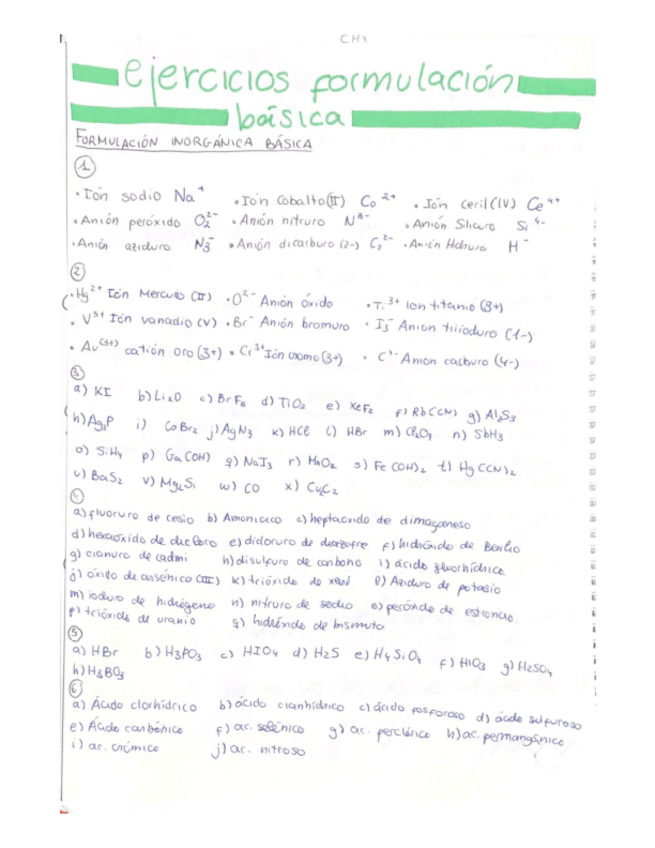 CM1
ejercicios formulación
básica
FORMULACIÓN INORGÁNICA BÁSICA
1
• Ión sodio Na⁺ • Ión Cobalto(II) Co²⁺ • Ión Ceril(IV) Ce⁴⁺
• Anión peróxido O₂²⁻ • Anión nitruro N³⁻ • Anión Siliciuro Si⁴⁻
• Anión aziduro N₃⁻ • Anión dicarburo (2-) C₂²⁻ • Anión Hidruro H⁻
2
• Hg²⁺ Ión Mercurio (II) • O²⁻ Anión óxido • Ti³⁺ Ion titanio (3+)
• V⁵⁺ Ión vanadio (V) • Br⁻ Anión bromuro • I₃⁻ Anion triioduro (1-)
• Au⁽³⁺⁾ catión oro (3+) • Cr³⁺ Ión cromo (3+) • C⁴⁻ Anion carburo (4-)
3
a) KI b) Li₂O c) BrF₅ d) TiO₂ e) XeF₂ f) Rb(CN) g) Al₂S₃
h) Ag₃P i) CoBr₂ j) AgN₃ k) HCl l) HBr m) Cl₂O₇ n) SbH₃
o) SiH₄ p) Ga(OH) q) NaI₃ r) MnO₂ s) Fe(OH)₂ t) Hg(CN)₂
u) BaS₂ v) Mg₂Si w) CO x) CuC₂
4
a) fluoruro de cesio b) Amoniaco c) heptaoxido de dimaganeso
d) hexaóxido de dicloro e) dicloruro de diazufre f) hidróxido de Berilio
g) cianuro de cadmi h) disulfuro de carbono i) ácido fluorhídrico
j) óxido de arsénico (III) k) trióxido de xenó l) Aziduro de potasio
m) ioduro de hidrógeno n) nitruro de sodio o) peróxido de estroncio
p) trióxido de uranio q) hidróxido de bismuto
5
a) HBr b) H₃PO₃ c) HIO₄ d) H₂S e) H₄SiO₄ f) HIO₃ g) H₂SO₄
h) H₃BO₃
6
a) Ácido clorhídrico b) ácido cianhídrico c) ácido fosforoso d) ácido sulfuroso
e) Ácido carbónico f) ac. selénico g) ac. perclórico h) ac. permangánico
i) ac. crómico j) ac. nitroso